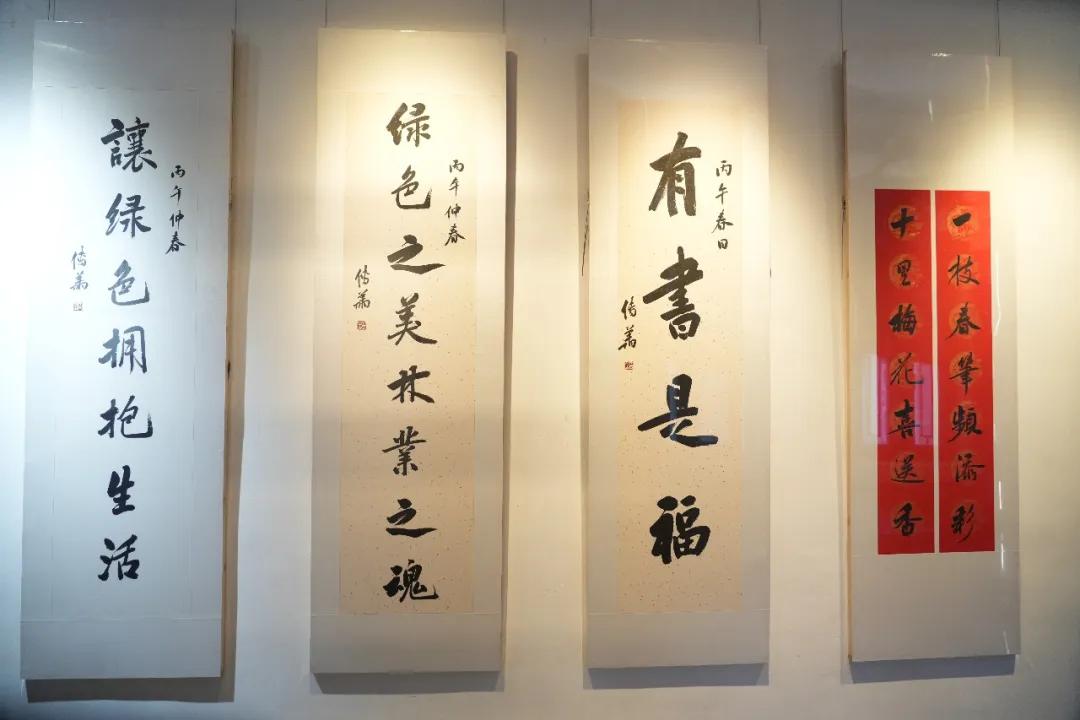 讓绿色拥抱生活
丙午仲春
绿色之美林業之魂
丙午仲春
有書是福
丙午春日
一枝春筆頻添彩
十里梅花喜送香